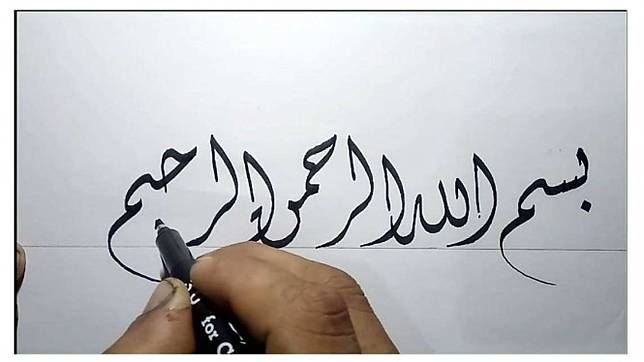 بسم الله الرحمن الرحيم
for